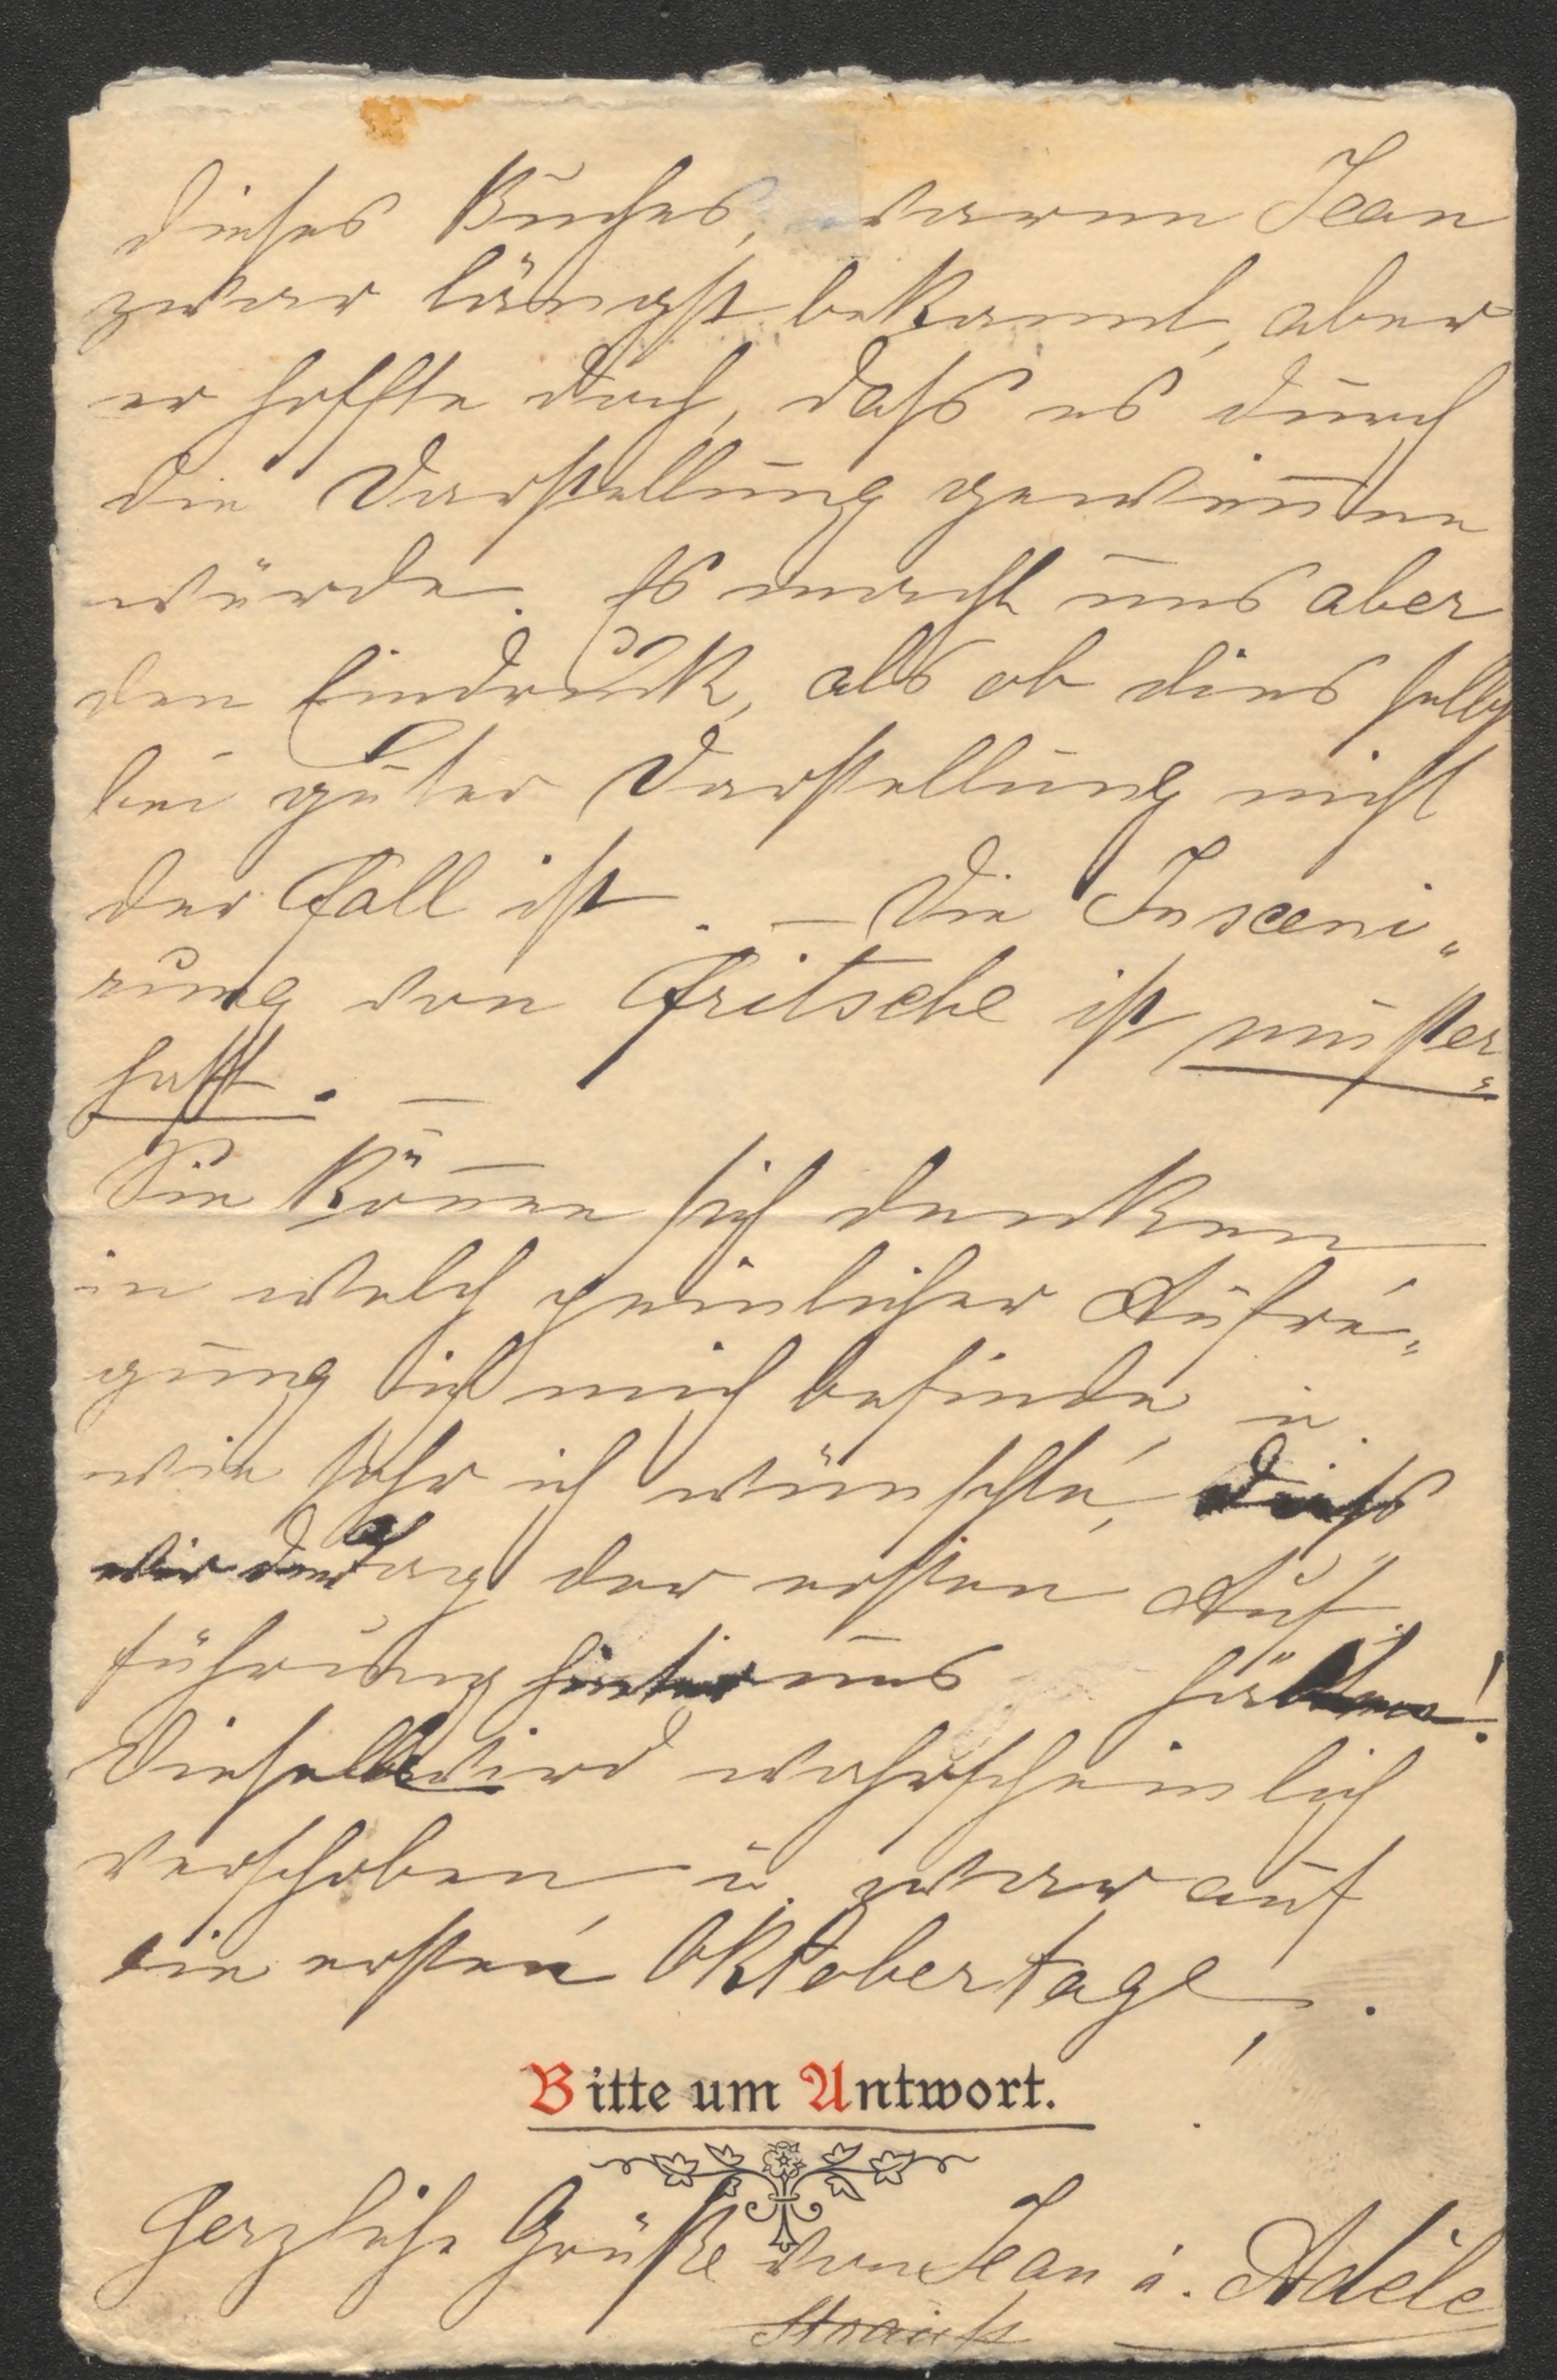 dieses Buches, waren Jean
zwar längst bekannt, aber
er hoffte doch, daß es durch
die Darstellung gewinnen
würde. Es macht uns aber
den Eindruck, als ob dies selbst
bei guter Darstellung nicht
der Fall ist. – Die Insceni„
rung von Fritsche ist muster„
haft. –
Sie können sich denken
in welch peinlicher Aufre„
gung ich mich befinde, u.
wie sehr ich wünschte, dass
wir den Tag der ersten Auf„
führung hinter uns hätten!
Dieselbe wird wahrscheinlich
verschoben, u. zwar auf
die ersten Oktobertage.
Bitte um Antwort.
Herzliche Grüße von Jean u. Adèle
Strauss